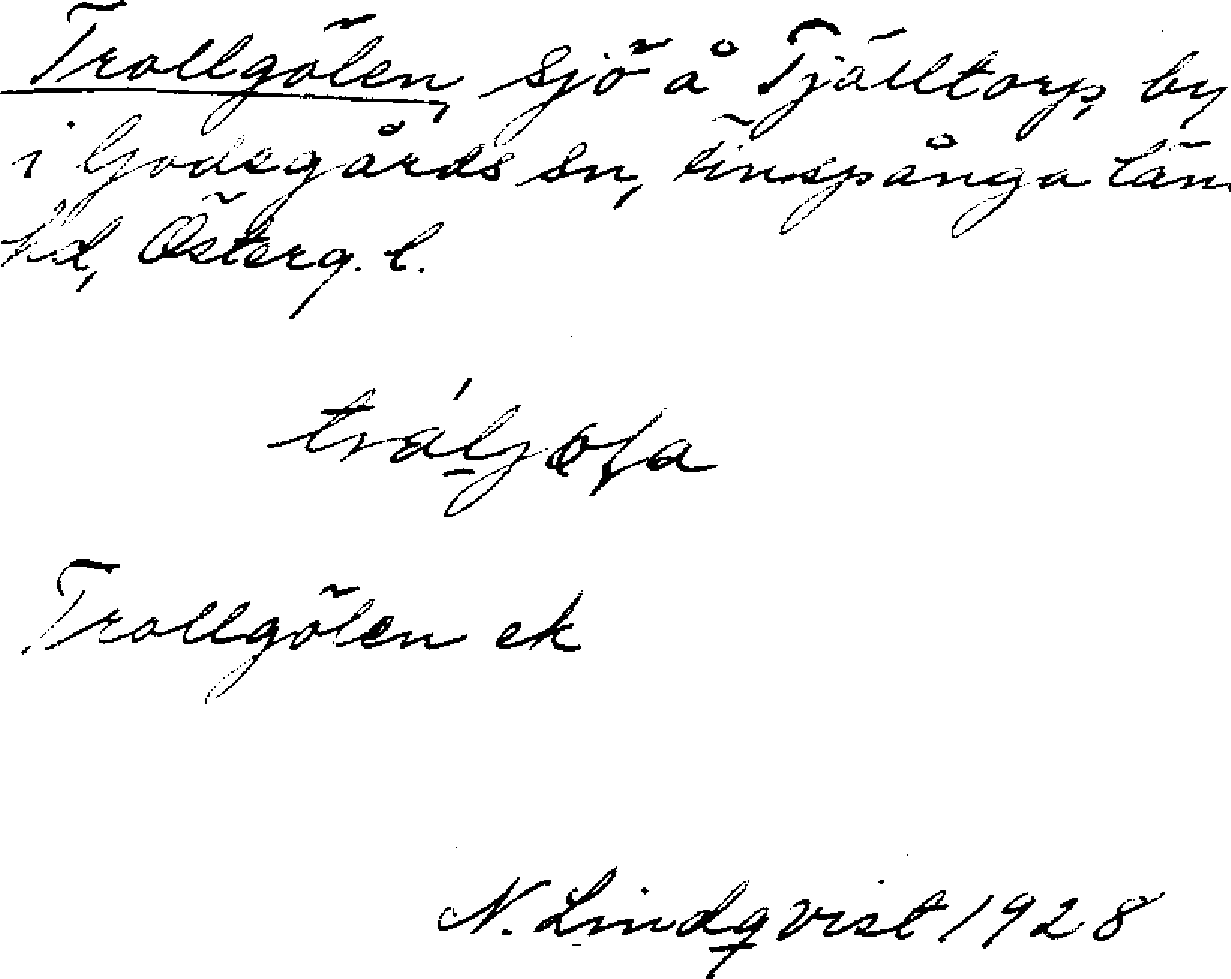 Trollgölen, sjö å Tjälltorp, by
i Godegårds sn, Finspånga län
hd, Österg. l.
Trollgölen ek
N. Lindqvist 1928